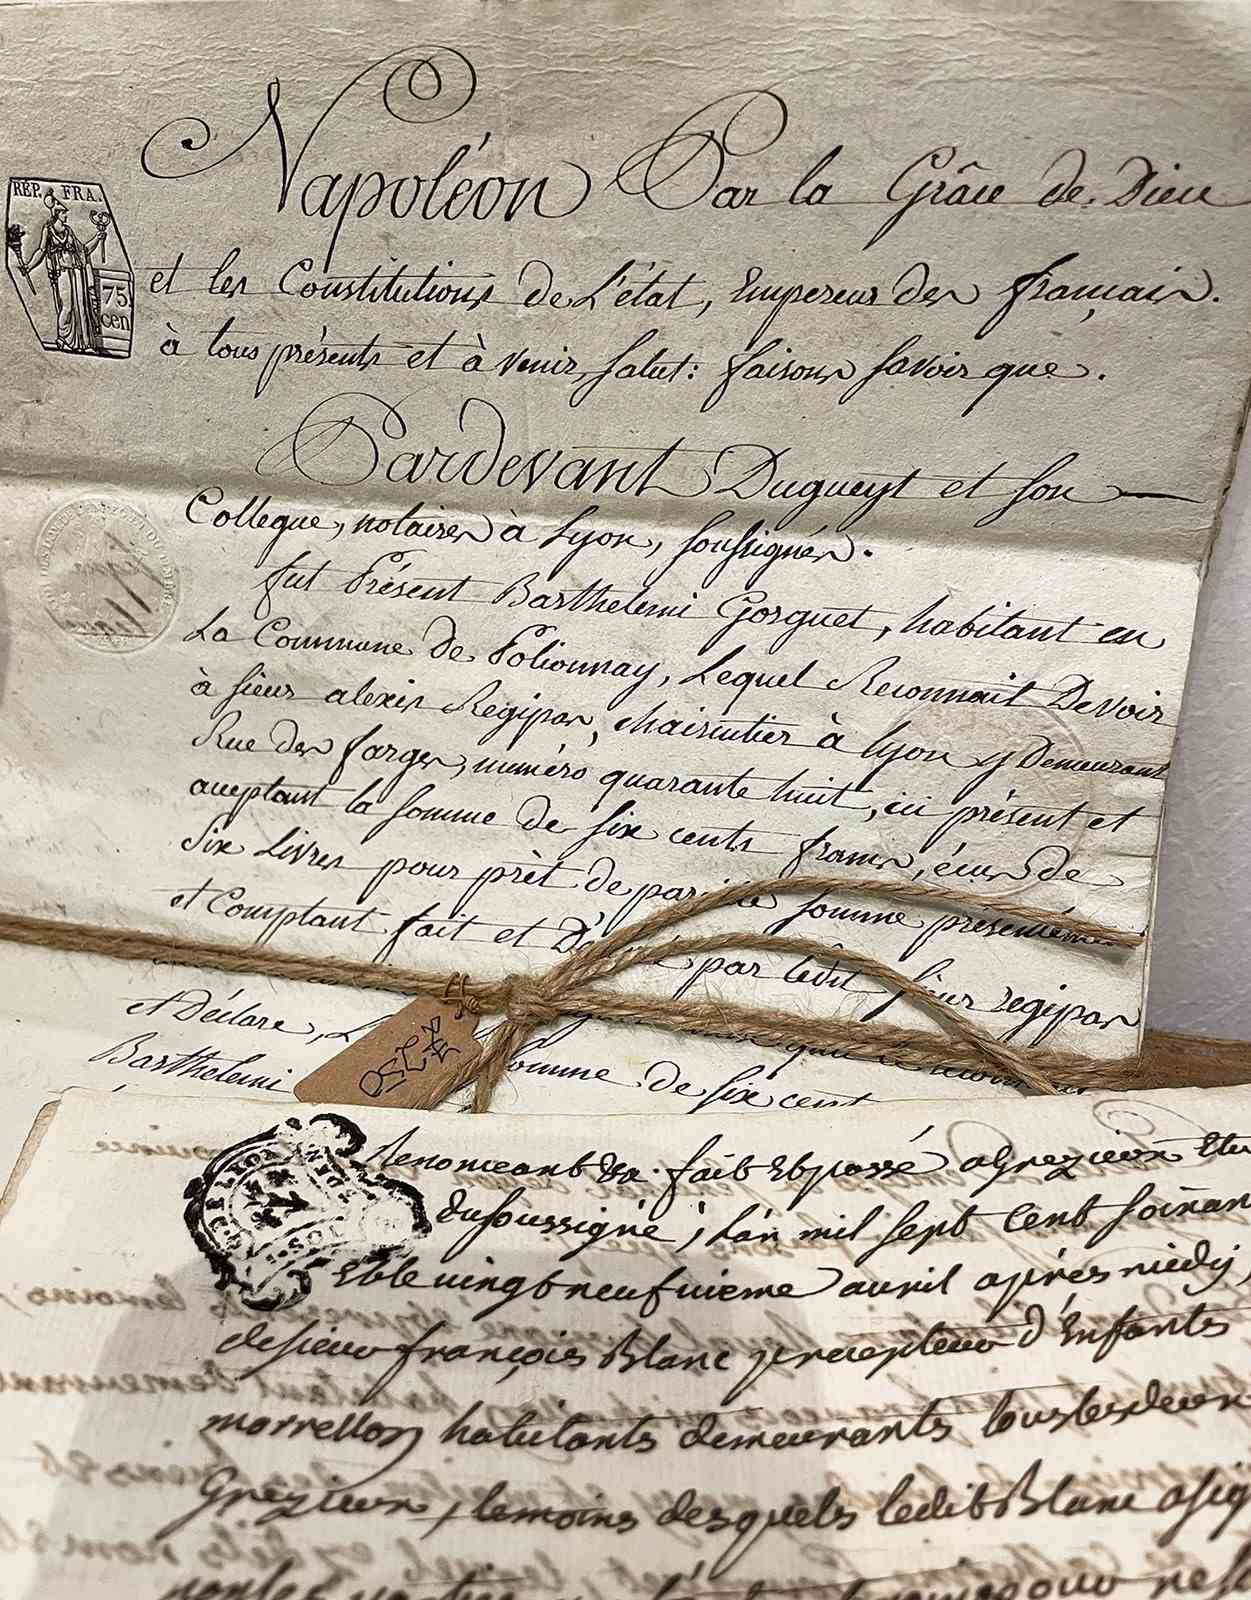 Napoléon Par la Grâce de Dieu
RÉP. FRA.
75.
cen
et les Constitutions de L'état, Empereur des français.
à tous présents et à venir, salut: faisons savoir que.
Pardevant Dugueyt et son
Collegue, notaires à Lyon, soussignés.
fut Présent Barthelemi Gorguet, habitant en
La Commune de Pollionnay, Lequel Reconnait Devoir
à sieur alexis Régipas, chaircutier à Lyon y Demeurant
Rue des farges, numéro quarante huit, ici présent et
acceptant la somme de six cents francs, écus de
Six Livres pour prêt de somme
et Comptant fait et par ledit sieur regipas
et Déclare,
Barthelemi somme de six cent
¥250
fait Et passé a Grezieux
du soussigné, L'an mil sept Cent
Et le vingt neufvieme avril après midy,
de sieur françois Blanc precepteur d'Enfants
morrellon habitants demeurants tous les deux
Grezieux, temoins desquels ledit Blanc a